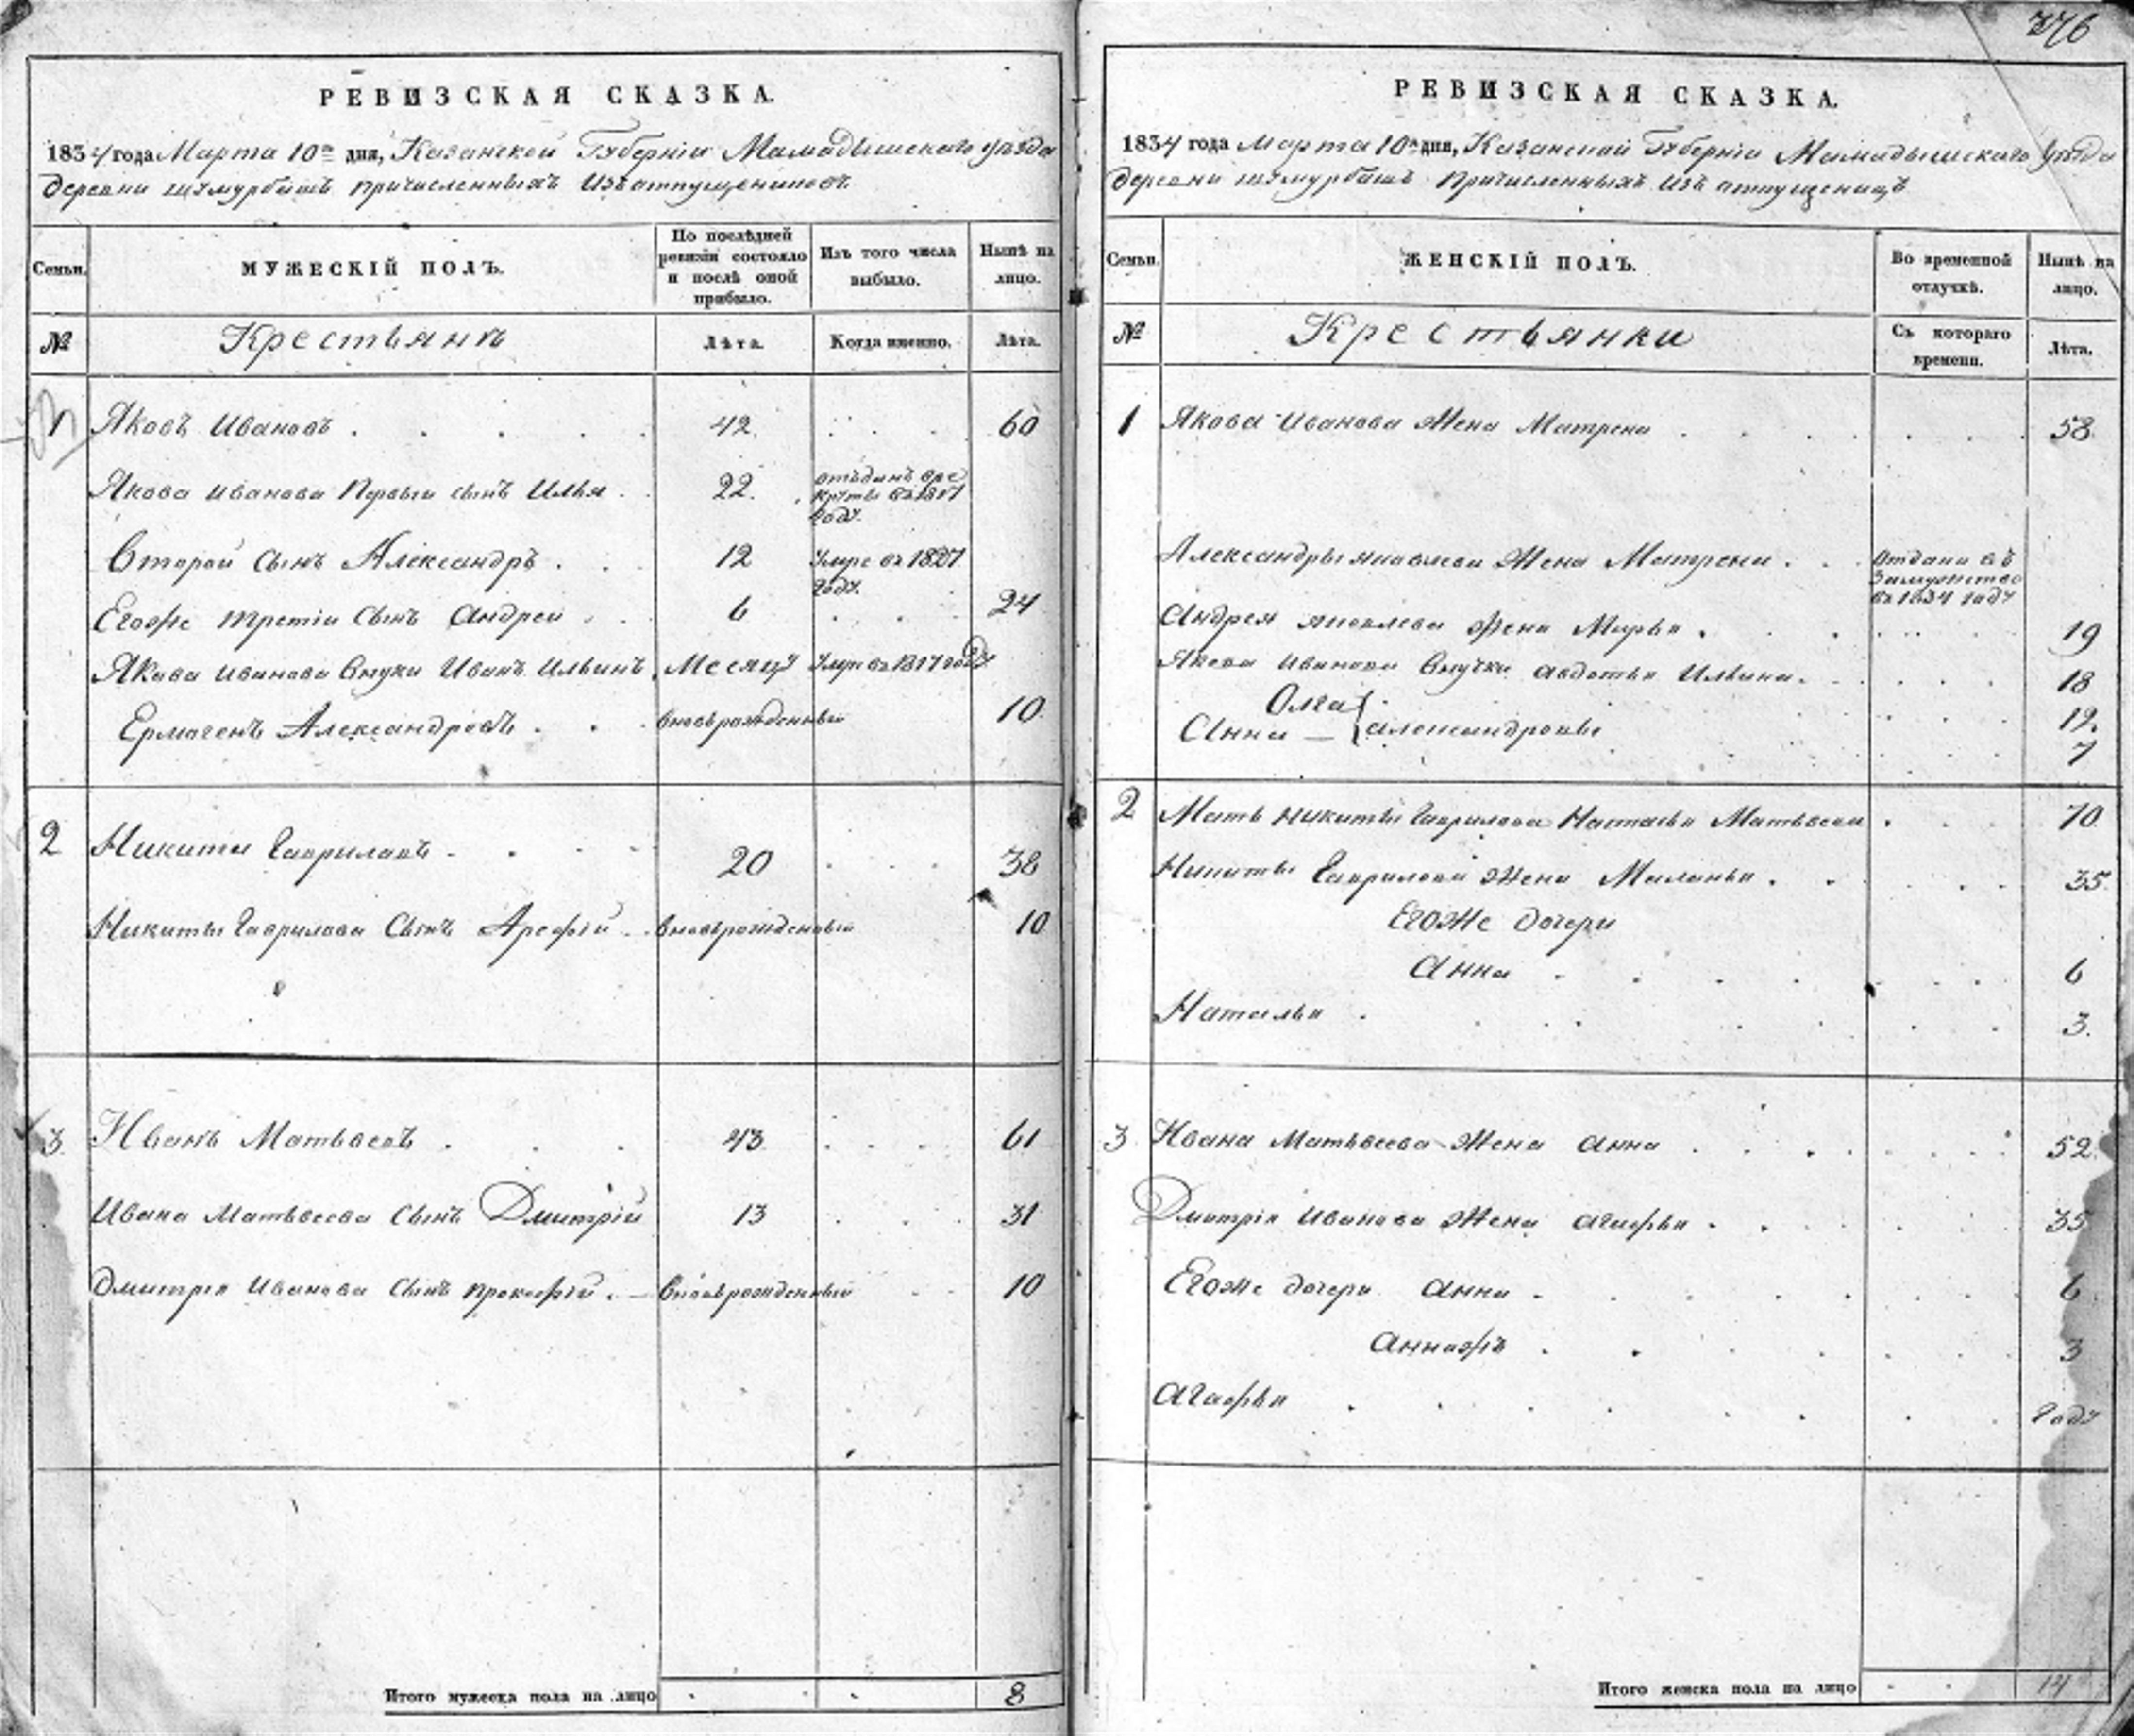 376
РЕВИЗСКАЯ СКАЗКА.
1834 года Марта 10го дня, Казанской Губернiи Мамадышскаго уезда
деревни шемурбашъ причисленныхъ изъ
Семьи.
МУЖЕСКIЙ ПОЛЪ.
По послѣдней ревизiи состояло и послѣ оной прибыло.
Изъ того числа выбыло.
Нынѣ на лицо.
№
Крестьянъ
Лѣта.
Когда именно.
Лѣта.
1 Яковъ Ивановъ 42 60
Якова Иванова Первый сынъ Илья 22. отъданъ в ре
круты въ 1817
году.
Второй Сынъ Александръ 12 Умре въ 1827
году.
Егоже третiй Сынъ Андрей 6 24
Якова Иванова Внуки Иванъ Ильинъ Месяцу Умре въ 1817 году
Ермогенъ Александровъ вновьрожденный 10
2 Никита Гавриловъ 20 38
Никиты Гаврилова Сынъ Арефiй вновьрожденный 10
3 Иванъ Матьвеевъ 43 61
Ивана Матьвеева Сынъ Дмитрiй 13 31
Дмитрея Иванова Сынъ прокофiй вновьрожденный 10
Итого мужеска пола на лицо 8
РЕВИЗСКАЯ СКАЗКА.
1834 года Марта 10го дня, Казанской Губернiи Мамадышскаго Уезда
деревни шемурбашъ Причисленныхъ изъ
Семьи.
ЖЕНСКIЙ ПОЛЪ.
Во временной отлучкѣ.
Нынѣ на лицо.
№
Крестьянки
Съ котораго времени.
Лѣта.
1 Якова Иванова Жена Матрена 58
Александры яковлева Жена Матрена отдана въ
Замужство
въ 1834 году
Андрея яковлева Жена Марья 19
Якова Иванова Внучки авдотья Ильина 18
Олга 12
Анна александровы 7
2 Мать Никиты Гаврилова Настасья Матьвеева 70
Никиты Гаврилова Жена Маланья 35
Егоже дочери
Анна 6
Наталья 3.
3 Ивана Матьвеева Жена Анна 52
Дмитрiя Иванова Жена агафья 35
Егоже дочери Анна 6
Аннажъ 3
Агафья году
Итого женска пола на лицо 14